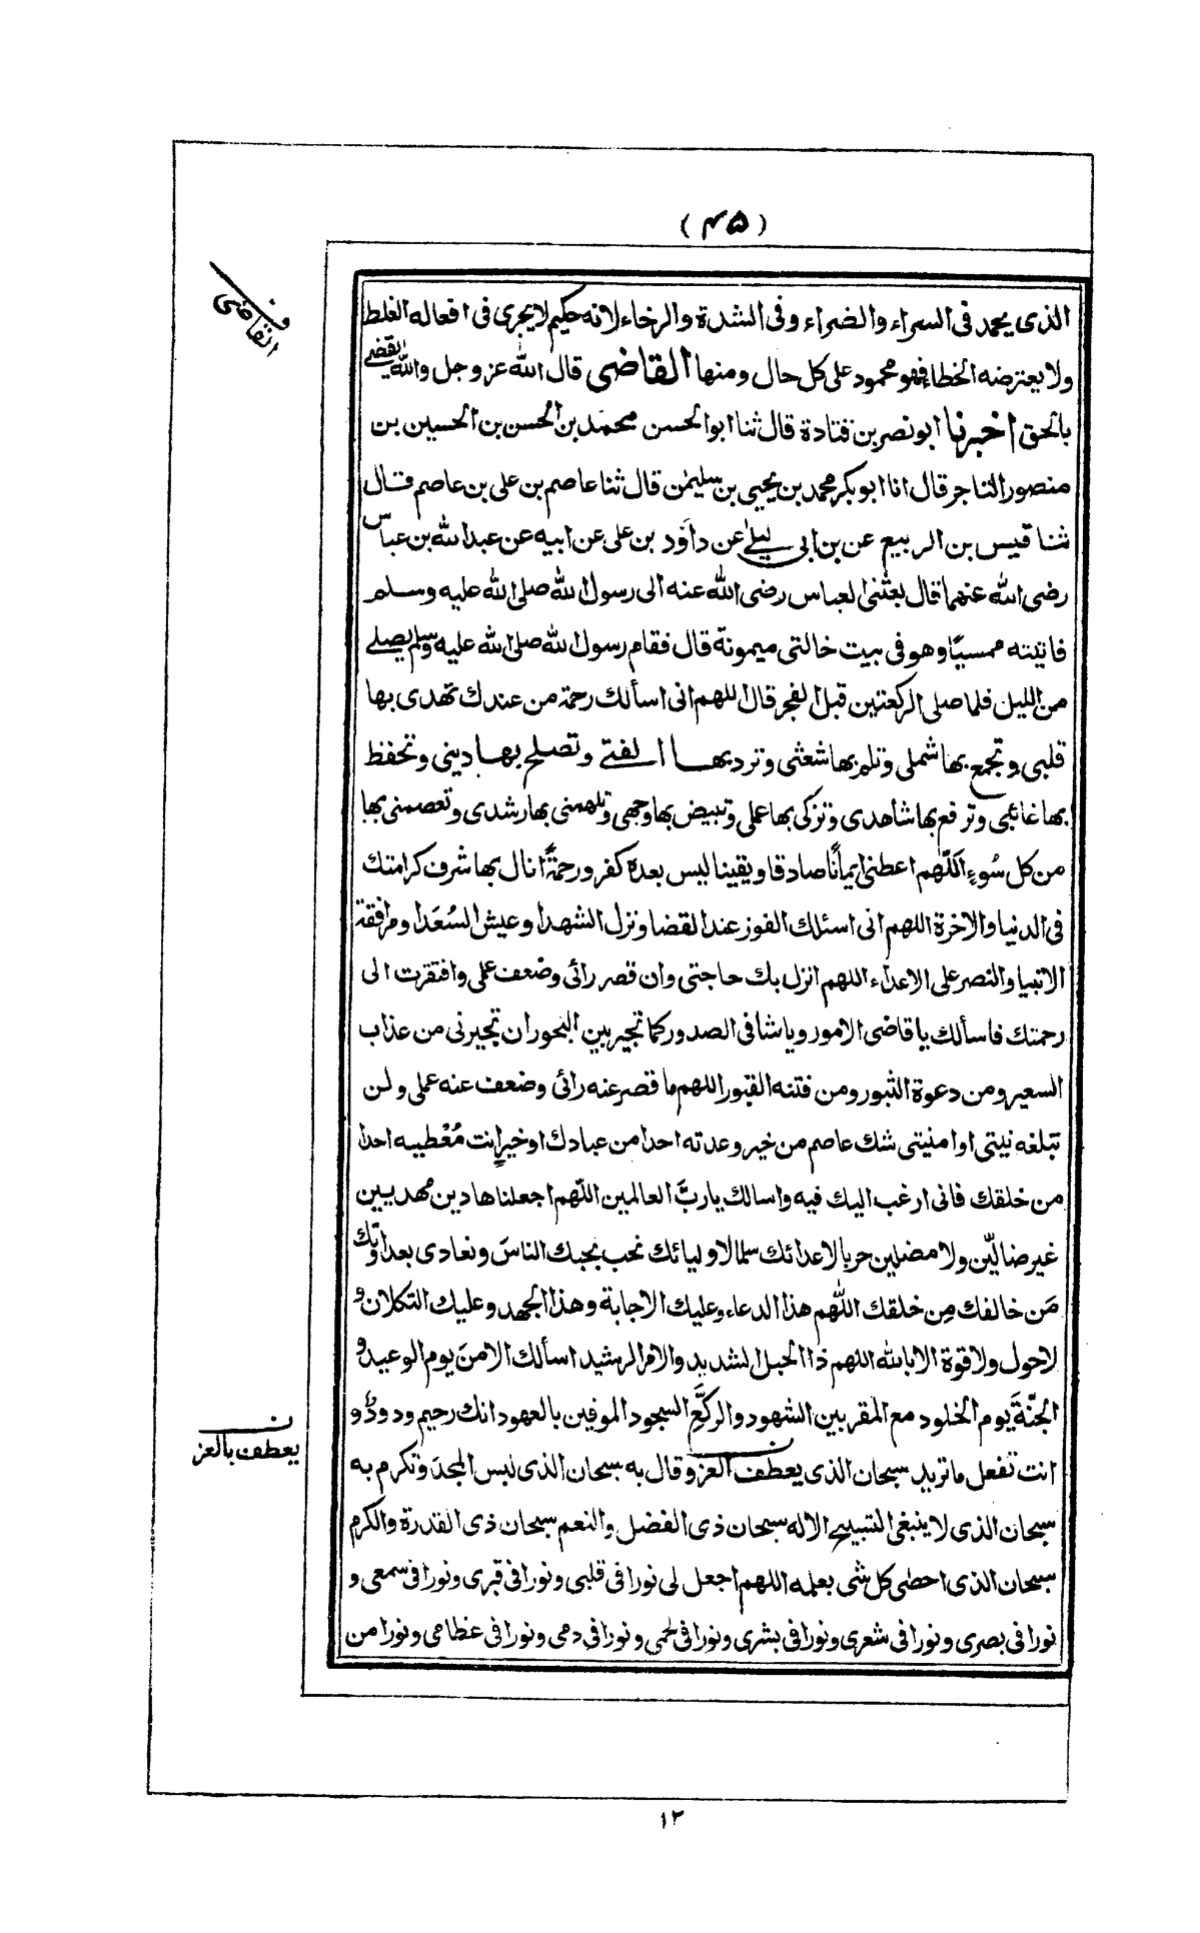 (۴۵)
القاضى
الذى يحمد فى السراء والضراء وفى الشدة والرخاء لانه حكيم لا يجرى فى افعاله الغلط
ولا يعترضه الخطاء فهو محمود على كل حال ومنها القاضى قال الله عز وجل والله يقضى
بالحق اخبرنا ابو نصر بن قتادة قال ثنا ابو الحسن محمد بن الحسن بن الحسين بن
منصور التاجر قال انا ابو بكر محمد بن يحيى بن سليمٰن قال ثنا عاصم بن على بن عاصم قال
ثنا قيس بن الربيع عن بن ابى ليلے عن داؤد بن على عن ابيه عن عبد الله بن عباس
رضى الله عنهما قال بعثنى العباس رضى الله عنه الى رسول الله صلى الله عليه وسلم
فاتيته ممسيًا وهو فى بيت خالتى ميمونة قال فقام رسول الله صلى الله عليه وسلم يصلے
من الليل فلما صلى الركعتين قبل الفجر قال اللهم انى اسألك رحمة من عندك تهدى بها
قلبى وتجمع بها شملى وتلم بها شعثى وترد بها الفتے وتصلح بها دينى وتحفظ
بها غائبى وترفع بها شاهدى وتزكى بها عملى وتبيض بها وجهى وتلهمنى بها رشدى وتعصمنى بها
من كل سُوءٍ اَللّٰهم اعطنى ايمانًا صادقا ويقينا ليس بعده كفر ورحمةً انال بها شرف كرامتك
فى الدنيا والاخرة اللهم انى اسئلك الفوز عند القضا ونزل الشهدا وعيش السُعَدا ومرافقة
الانبيا والنصر على الاعداء اللهم انزل بك حاجتى وان قصر رائى وضعف عملى وافتقرت الى
رحمتك فاسألك يا قاضى الامور ويا شافى الصدور كما تجير بين البحور ان تجيرنى من عذاب
السعير ومن دعوة الثبور ومن فتنه القبور اللهم ما قصر عنه رائى وضعف عنه عملى ولن
تبلغه نيتى او امنيتى شك عاصم من خير وعدته احدا من عبادك او خير انت مُعْطيه احدا
من خلقك فانى ارغب اليك فيه واسالك يا ربَّ العالمين اللّٰهم اجعلنا هادين مهديين
غير ضالّين ولا مضلين حربا لاعدائك سلما لاوليائك نحب بحبك الناسَ ونعادى بعداوتك
مَن خالفك مِن خلقك اللّٰهم هذا الدعاء وعليك الاجابة وهذا الجهد وعليك التكلان و
لاحول ولا قوة الا بالله اللهم ذا الحبل الشديد والامر الرشيد اسألك الامنَ يوم الوعيد و
الجنّةَ يوم الخلود مع المقربين الشهود والركّعِ السجود الموفين بالعهود انك رحيم ودود و
انت تفعل ما تريد سبحان الذى يعطف العز وقال به سبحان الذى لبس المجدَ وتكرم به
سبحان الذى لا ينبغى التسبيح الا له سبحان ذى الفضل والنعم سبحان ذى القدرة والكرم
سبحان الذى احصٰى كل شى بعلمه اللهم اجعل لى نورا فى قلبى ونورا فى قبرى ونورا فى سمعى و
نورا فى بصرى ونورا فى شعرى ونورا فى بشرى ونورا فى لحمى ونورا فى دمى ونورا فى عظامى ونورا من
ن
يعطف بالعز
۱۲